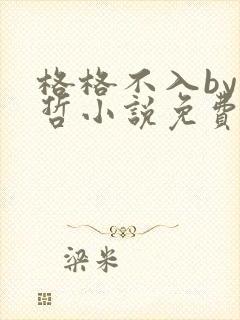 格格不入by
哲小説免費
梁米